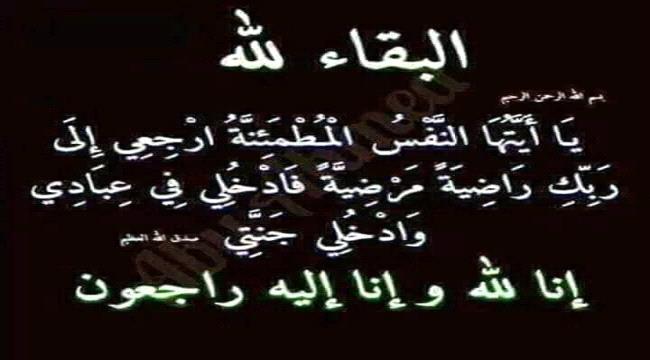 البقاء لله
بسم الله الرحمن الرحيم
يَا أَيَّتُهَا النَّفْسُ الْمُطْمَئِنَّةُ ارْجِعِي إِلَى
رَبِّكِ رَاضِيَةً مَرْضِيَّةً فَادْخُلِي فِي عِبَادِي
وَادْخُلِي جَنَّتِي صدق الله العظيم
إنا لله و إنا إليه راجعون